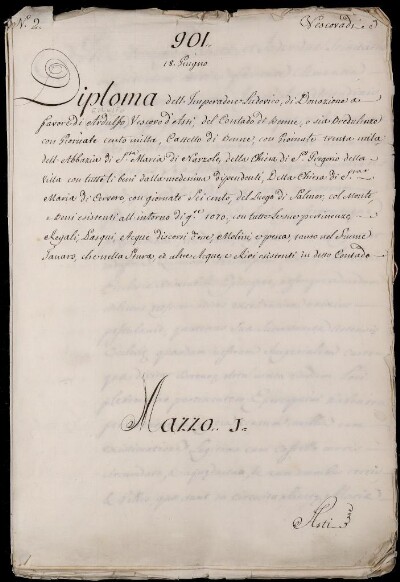 N.° 2.
Vescovadi
901
18. Giugno
Diploma dell' Imperadore Ludovico, di Donazione a
favore di Ardulfo Vescovo d'Asti, del Contado di Benne, e sua Dipendenze
con Giornate cento milla, Castello di Benne, con Giornate trenta mila
dell' Abbazia di S.ta Maria di Narzole, della Chiesa di S.t Gregorio della
Villa con tutti li beni dalla medesima dipendenti, Della Chiesa di S.ta
Maria di Cervere, con giornate Sei cento, del Luogo di Salmor, col Monte,
e beni esistenti all' intorno di g.te 1070, con tutte le sue pertinenze
Regali, Pasqui, Acque discorsi d'esse, Molini, e pesca, tanto nel fiume
Tanaro, che nella Stura, et altre Acque, e Rivi esistenti in detto Contado
Mazzo. 1.
Asti